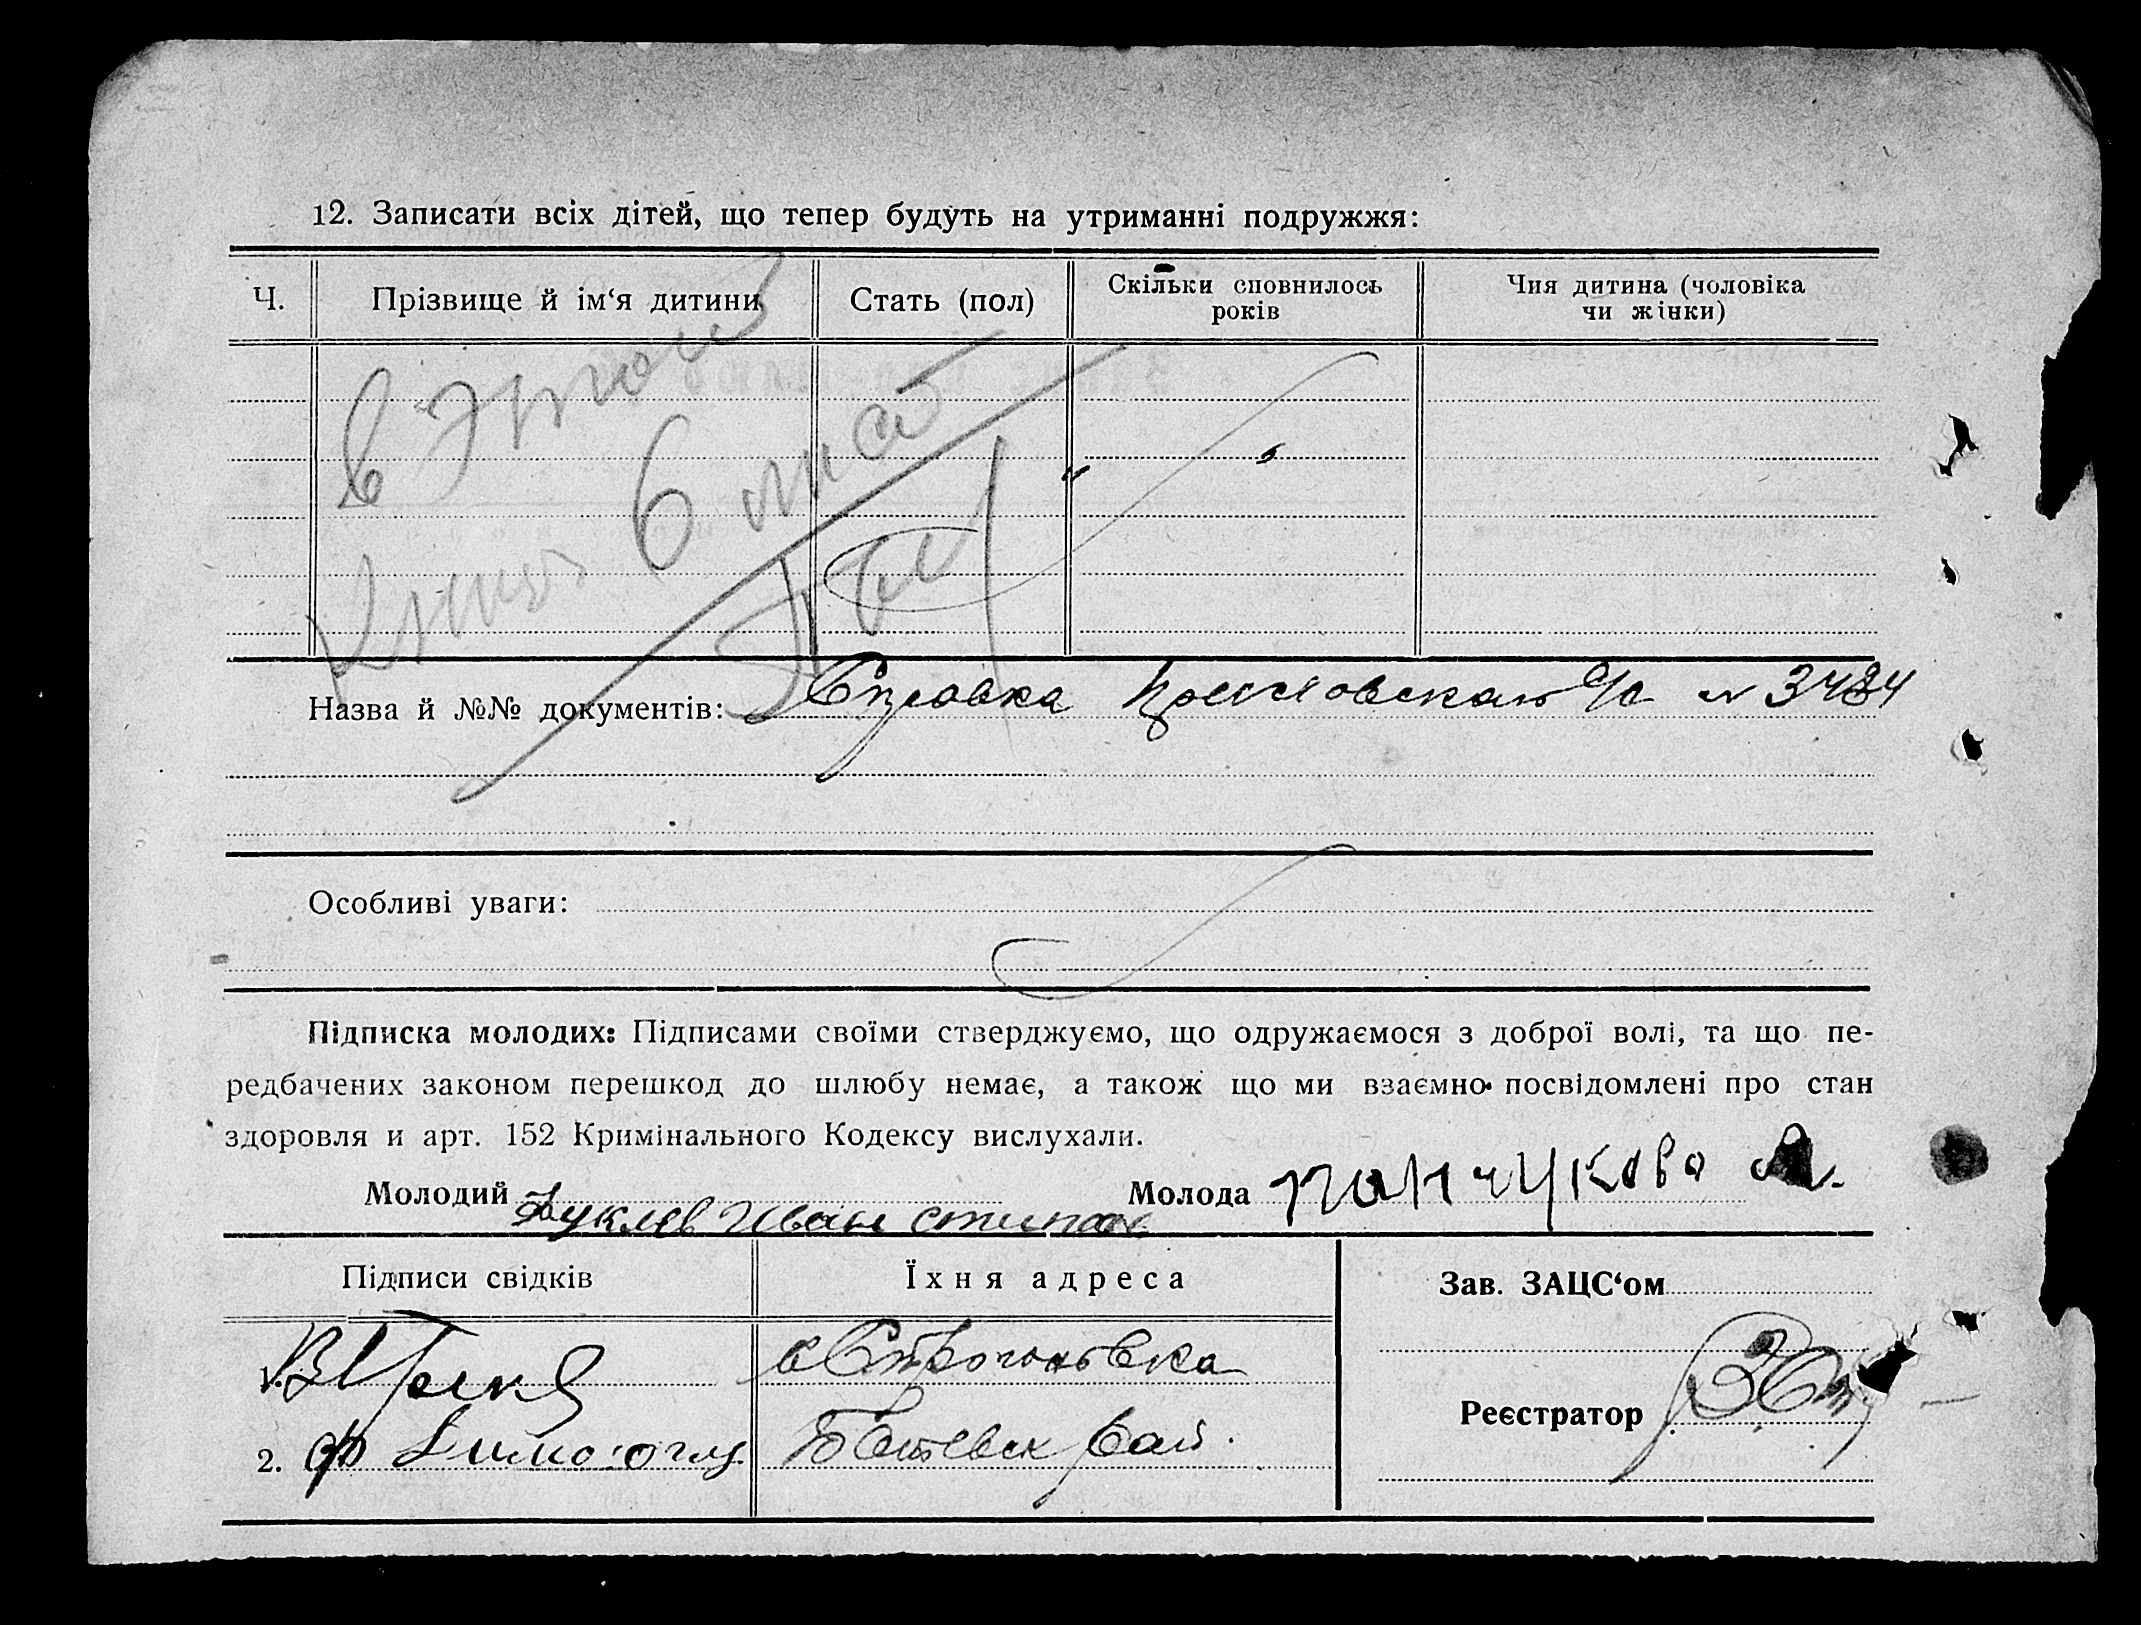 12. Записати всіх дітей, що тепер будуть на утриманні подружжя:
Ч. Прізвище й ім‘я дитини Стать (пол) Скільки сповнилось років Чия дитина (чоловіка чи жінки)
в этой
книге 6 лист
Назва й №№ документів: Справка с/с № 3484
Особливі уваги:
Підписка молодих: Підписами своїми стверджуємо, що одружаємося з доброї волі, та що пе-
редбачених законом перешкод до шлюбу немає, а також що ми взаємно посвідомлені про стан
здоровля и арт. 152 Кримінального Кодексу вислухали.
Молодий Иван Молода Панчукова
Підписи свідків Їхня адреса Зав. ЗАЦС‘ом
1. с Строгоновка
Реєстратор
2. Ф рай.